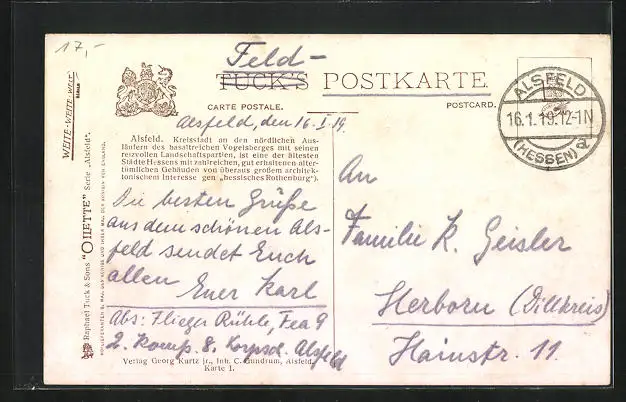 17,-
Feld-
TUCK'S POSTKARTE.
CARTE POSTALE.
POSTCARD.
ALSFELD
16.1.19.12-1N
(HESSEN) a
Alsfeld, den 16. I. 19.
Alsfeld. Kreisstadt an den nördlichen Aus-
läufern des basaltreichen Vogelsberges mit seinen
reizvollen Landschaftspartien, ist eine der ältesten
Städte Hessens mit zahlreichen, gut erhaltenen alter-
tümlichen Gebäuden von überaus großem architek-
tonischem Interesse gen „hessisches Rothenburg").
Die besten Grüße
aus dem schönen Als-
feld sendet Euch
allen Euer Karl
Abs: Flieger Rühle, Fea 9
2. Komp. 8. Korpsd. Alsfeld
Verlag Georg Kurtz jr., Inh. C. Gundrum, Alsfeld.
Karte 1.
An
Familie K. Geisler
Herborn (Dillkreis)
Hainstr. 11.
WEITE-WEITE-WELT
Raphael Tuck & Sons "OILETTE" Serie „Alsfeld".